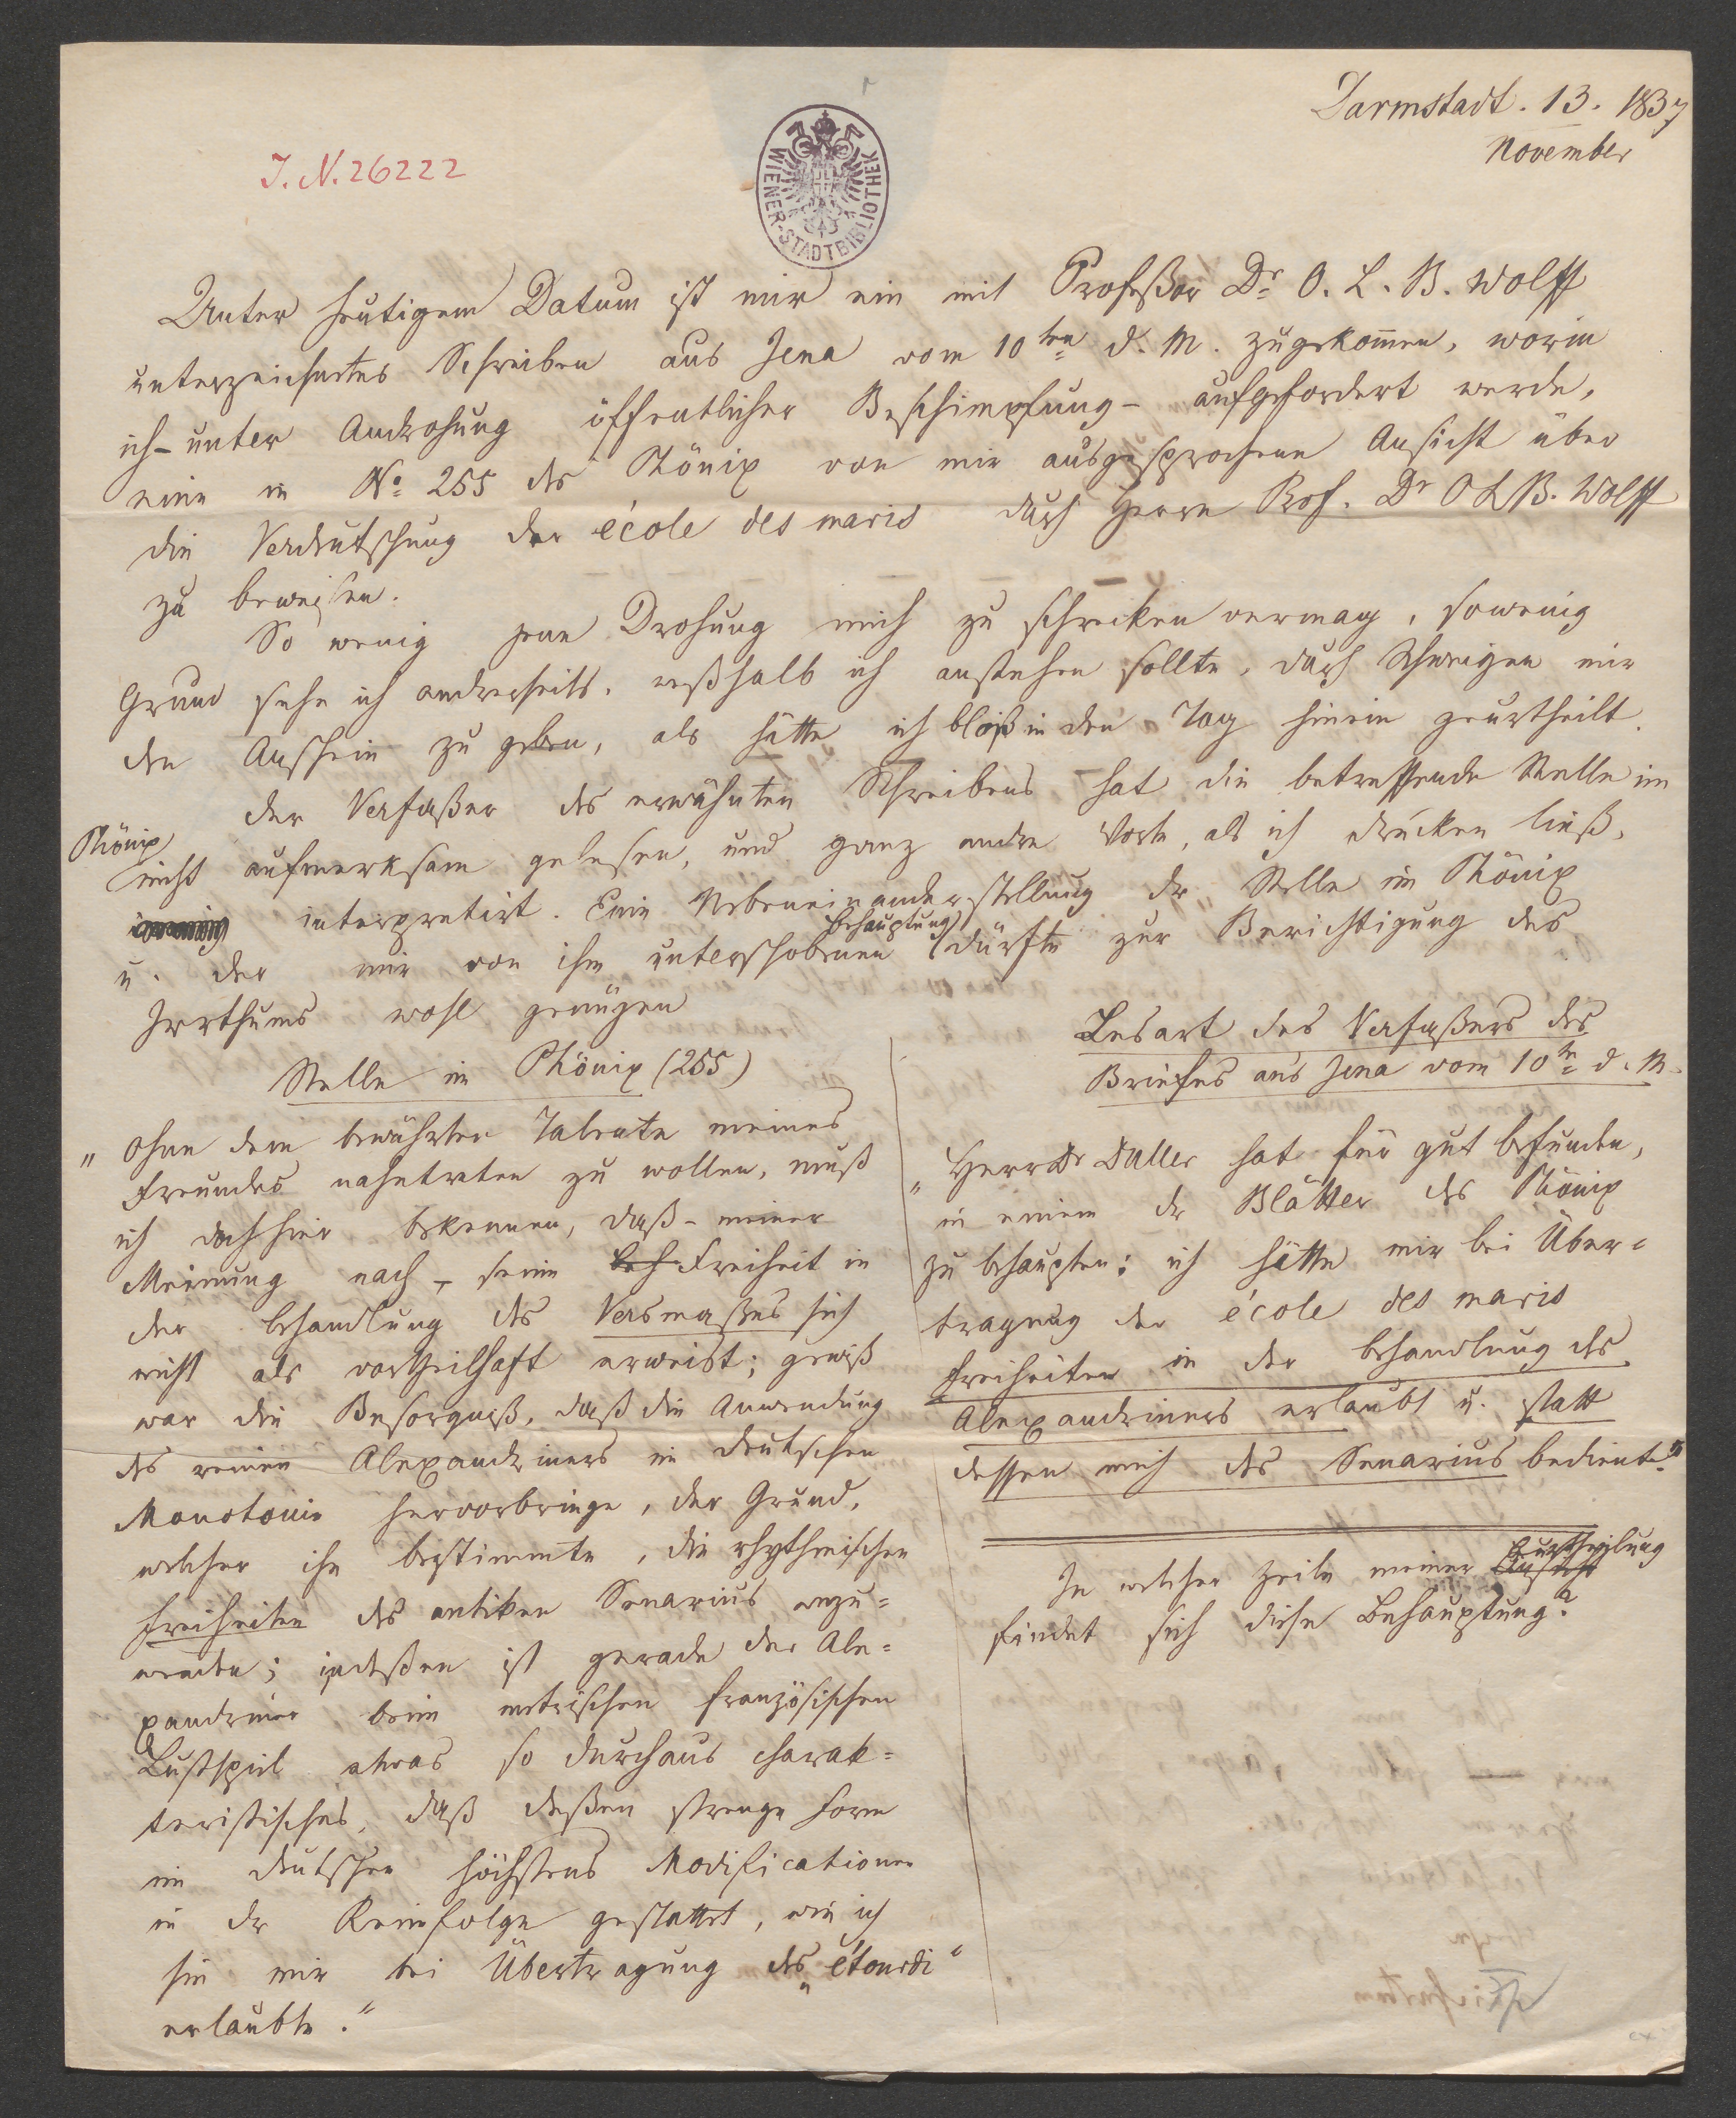 Darmstadt. 13. 1837
November
J. N. 26222
WIENER-STADTBIBLIOTHEK
Unter heutigem Datum ist mir ein mit Profeßor Dr. O. L. B. Wolff
unterzeichnetes Schreiben aus Jena vom 10ten d. M. zugekom̄en, worin
ich - unter Androhung öffentlicher Beschimpfung - aufgefordert werde,
eine in No. 255 des Phönix von mir ausgesprochene Ansicht über
die Verdeutschung der école des maris durch Herrn Prof. Dr O L B. Wolff
zu beweisen.
So wenig jene Drohung mich zu schrecken vermag, sowenig
Grund sehe ich andrerseits, weßhalb ich anstehen sollte, durch Schweigen mir
den Anschein zu geben, als hätte ich bloß in den Tag hinein geurtheilt.
Der Verfaßer des erwähnten Schreibens hat die betreffende Stelle im
Phönix
nicht aufmerksam gelesen, und ganz andre Worte, als ich drucken ließ,
interpretirt. Eine Nebeneinanderstellung der Stelle im Phönix
Behauptung
u. der mir von ihm unterschobenen dürfte zur Berichtigung des
Irrthums wohl genügen
Stelle im Phönix (255)
„ Ohne dem bewährten Talente meines
Freundes nahetreten zu wollen, muß
ich doch hier bekennen, daß - meiner
Meinung nach - seine Beh Freiheit in
der Behandlung des Versmaßes sich
nicht als vortheilhaft erweist; gewiß
war die Besorgniß, daß die Anwendung
des reinen Alexandriners im Deutschen
Monotonie hervorbringe, der Grund,
welcher ihn bestimmte, die rhythmischen
Freiheiten des antiken Senarius anzu=
wenden; indeßen ist gerade der Ale=
xandriner beim metrischen französischen
Lustspiel etwas so durchaus charak=
teristisches, daß deßen strenge Form
im Deutschen höchstens Modificationen
in der Reimfolge gestattet, wie ich
sie mir bei Übertragung des „étourdi“
erlaubte.“
Lesart des Verfaßers des
Briefes aus Jena vom 10tn d. M.
„Herr Dr Duller hat für gut befunden,
in einem der Blätter des Phönix
zu behaupten: ich hätte mir bei Über=
tragung der école des maris
Freiheiten in der Behandlung des
Alexandriners erlaubt u. statt
dessen mich des Senarius bedient.“
In welcher Zeile meiner Beurtheilung
findet sich diese Behauptung?